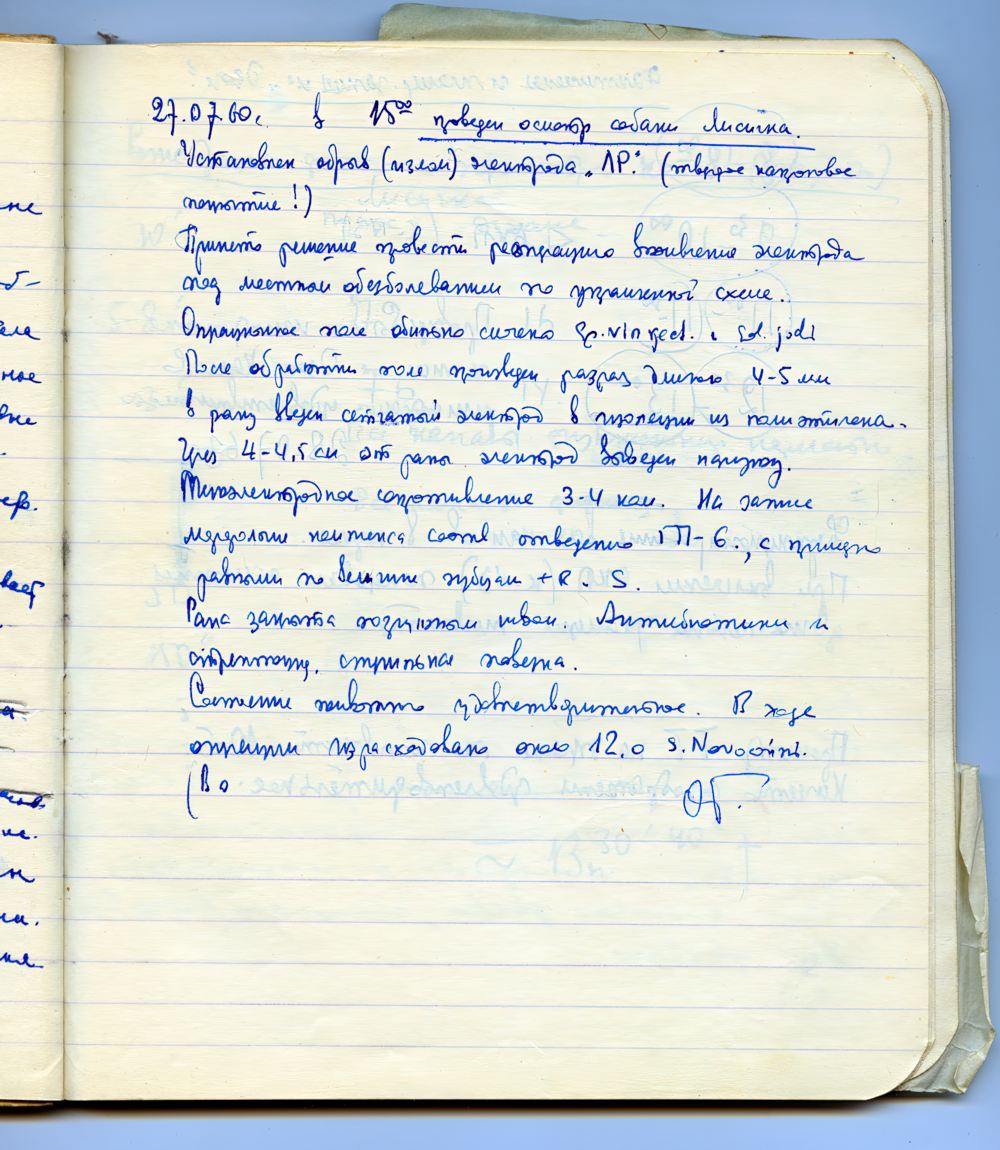 27.07.60г. в 15⁰⁰ проведен осмотр собаки Лисичка.
Установлен обрыв (излом) электрода „ЛР." (твердое капроновое
покрытие!)
Принято решение провести реоперацию вживление электрода
под местным обезболеванием по указанной схеме.
Операционное поле обильно смочено Sp. vin rect. и Sol. jodi
После обработки поле произведен разрез длиною 4-5 мм
В рану введен сетчатый электрод в изоляции из полиэтилена.
Через 4-4,5 см от раны электрод выведен наружу.
Межэлектродное сопротивление 3-4 ком. На записе
желудочк. комплекса соотв отведению ГП-6., с примерно
равными по величине зубцам +R и S.
Рана закрыта швом. Антибиотики и
стрептоцид. стерильная повязка.
Состояние животного удовлетворительное. В ходе
операции израсходовано около 12.0 S. Novocaini.
(Во
ОГ.
не
ела
ное
вне
ер.
вает
а.
не.
н
на.
ния